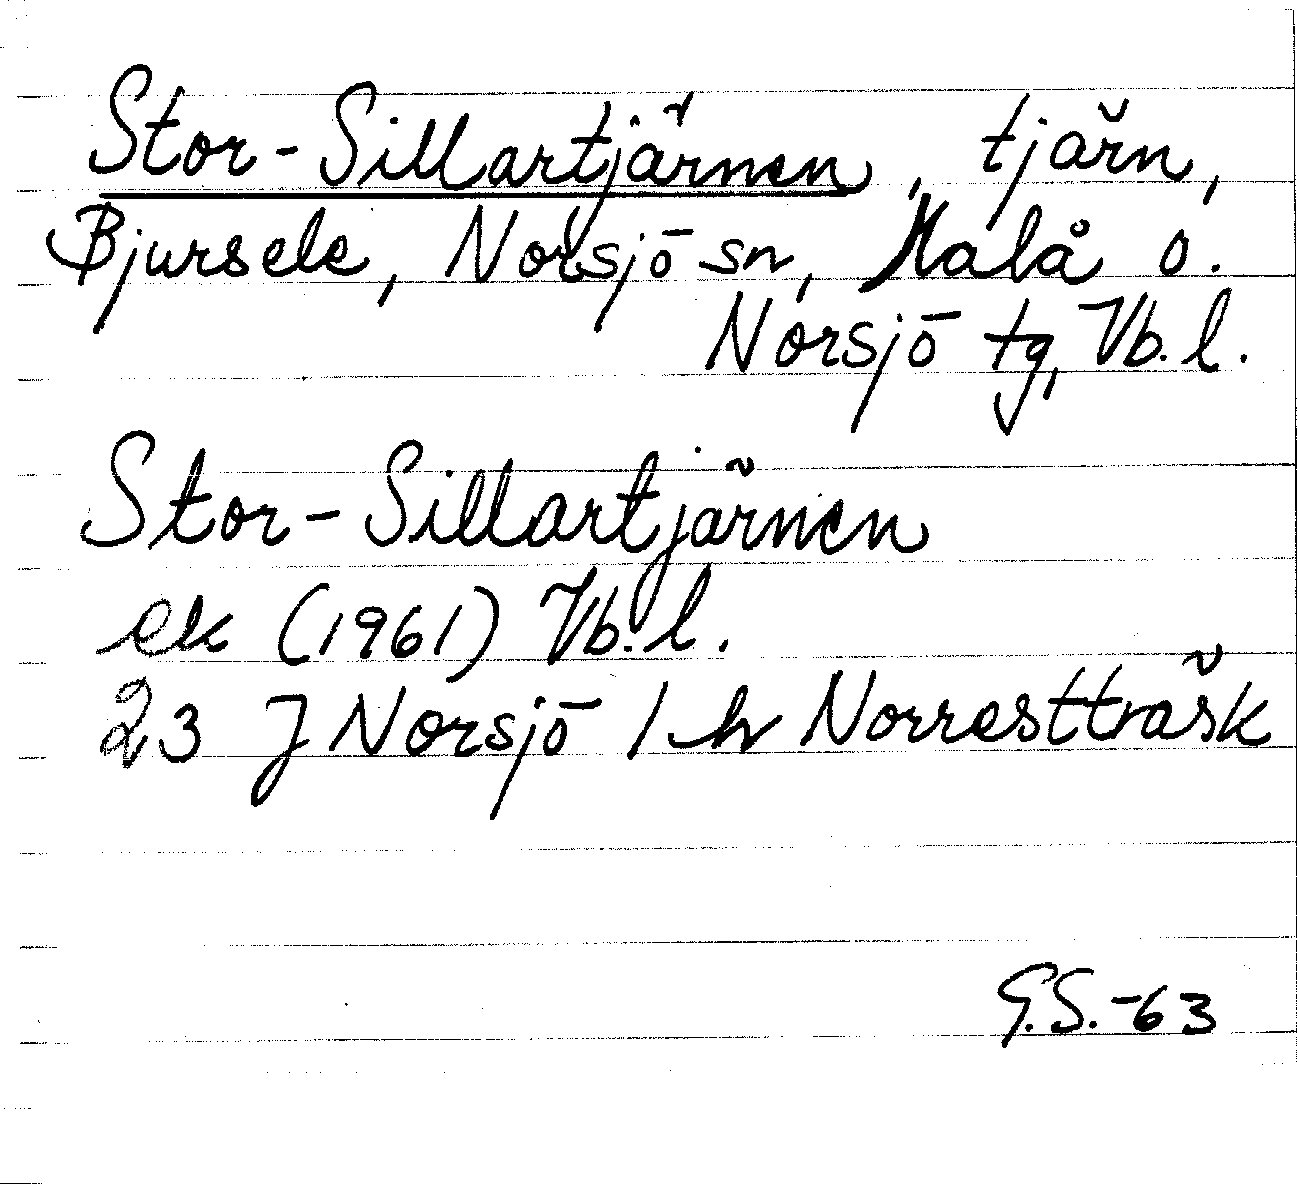 Stor-Sillartjärnen, tjärn,
Bjursele, Norsjö sn, Malå o.
Norsjö tg, Vb. l.
Stor-Sillartjärnen
ek (1961) Vb. l.
23 J Norsjö 1 h Norresttråsk
G.S.-63